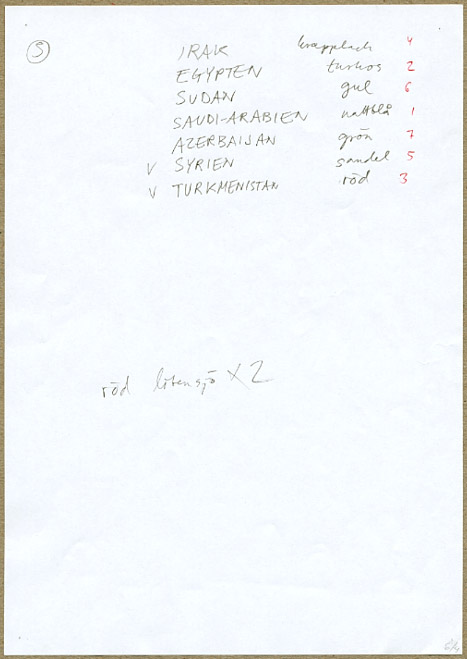 S
IRAK krapplack 4
EGYPTEN turkos 2
SUDAN gul 6
SAUDI-ARABIEN nattblå 1
AZERBAIJAN grön 7
V SYRIEN sandel 5
V TURKMENISTAN röd 3
röd liten sjö X 2